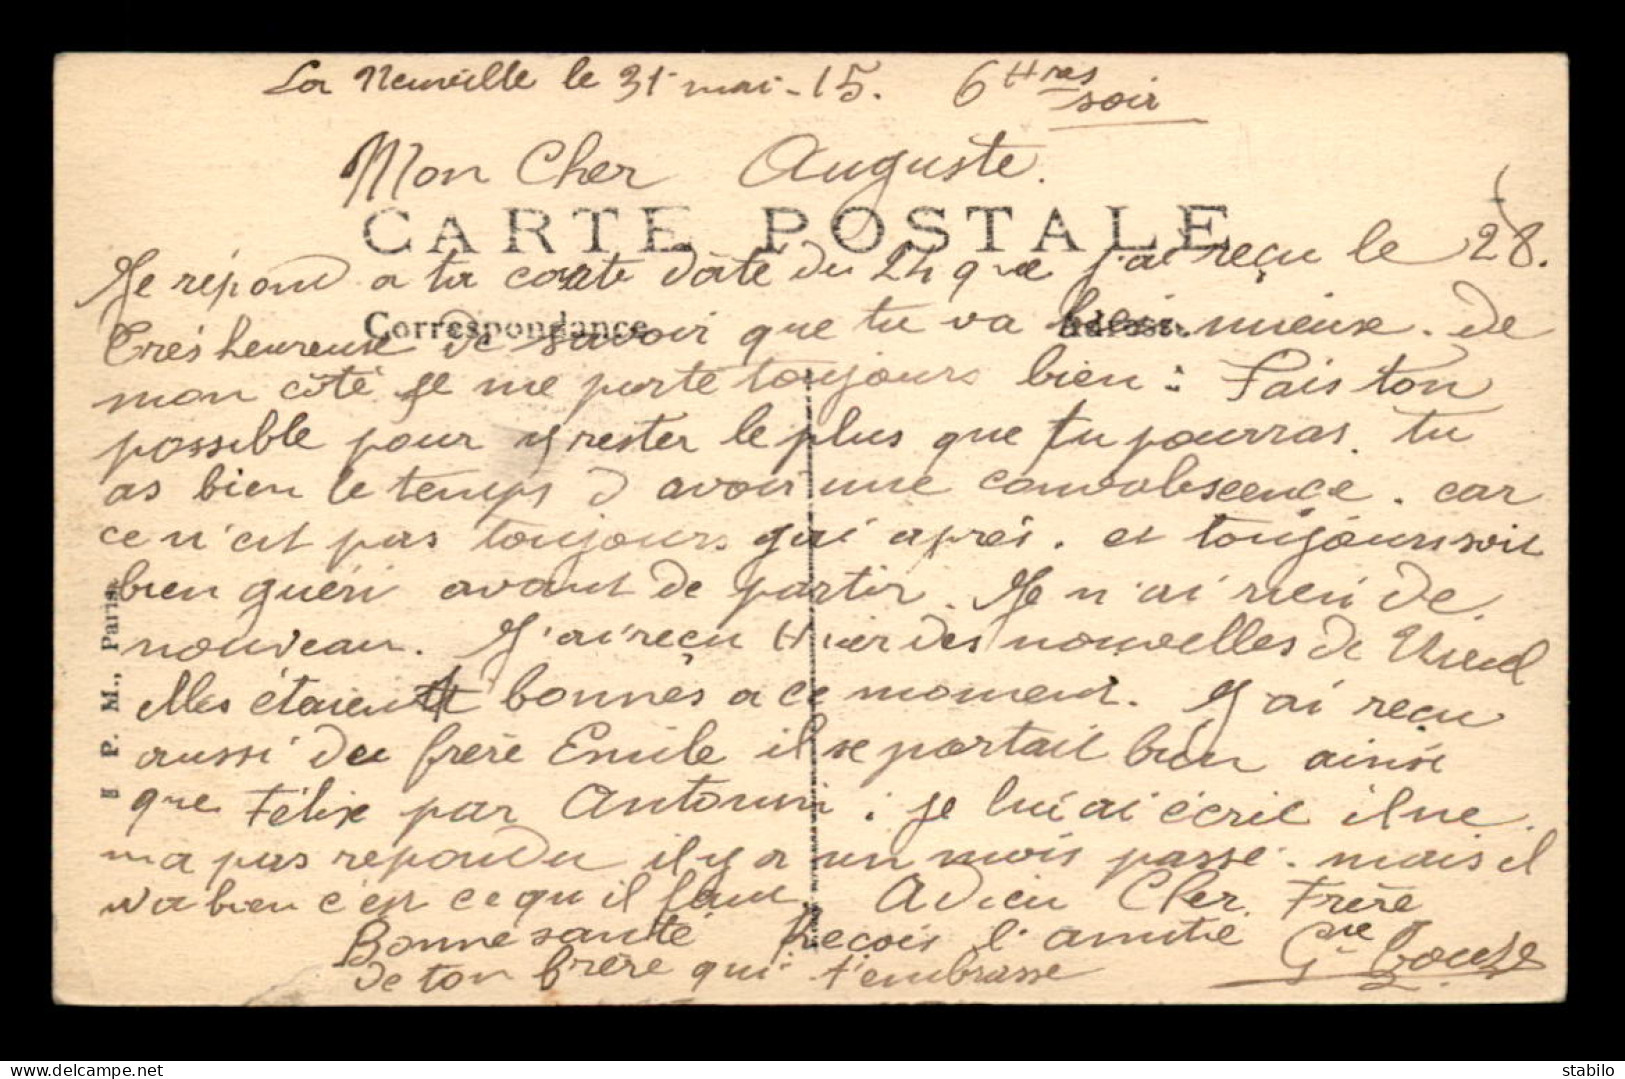 La Neuville le 31 mai - 15. 6 Hres soir
Mon Cher Auguste.
CARTE POSTALE
Je répond a ta carte date du 24 que j'ai reçu le 28.
Correspondance Adresse
Très heureuse de savoir que tu va bein mieux. De
mon côté je me porte toujours bien : Fais ton
possible pour y rester le plus que tu pourras. tu
as bien le temps d avoir une convalescence. car
ce n'est pas toujours gai après. et toujours soit
bien guéri avant de partir. Je n'ai rien de
nouveau. J'ai reçu Hier des nouvelles de
elles étaient bonnes a ce moment. J'ai reçu
aussi du frère Emile il se portait bien ainsi
que Félix par Antonin : je lui ai écrit il ne
ma pas repondu il y a un mois passé. mais il
va bien c'est ce qu il faut. Adieu Cher Frère
Bonne santé Reçois l'amitié
de ton frère qui t'embrasse
P. M., Paris.
delcampe.net
stabilo